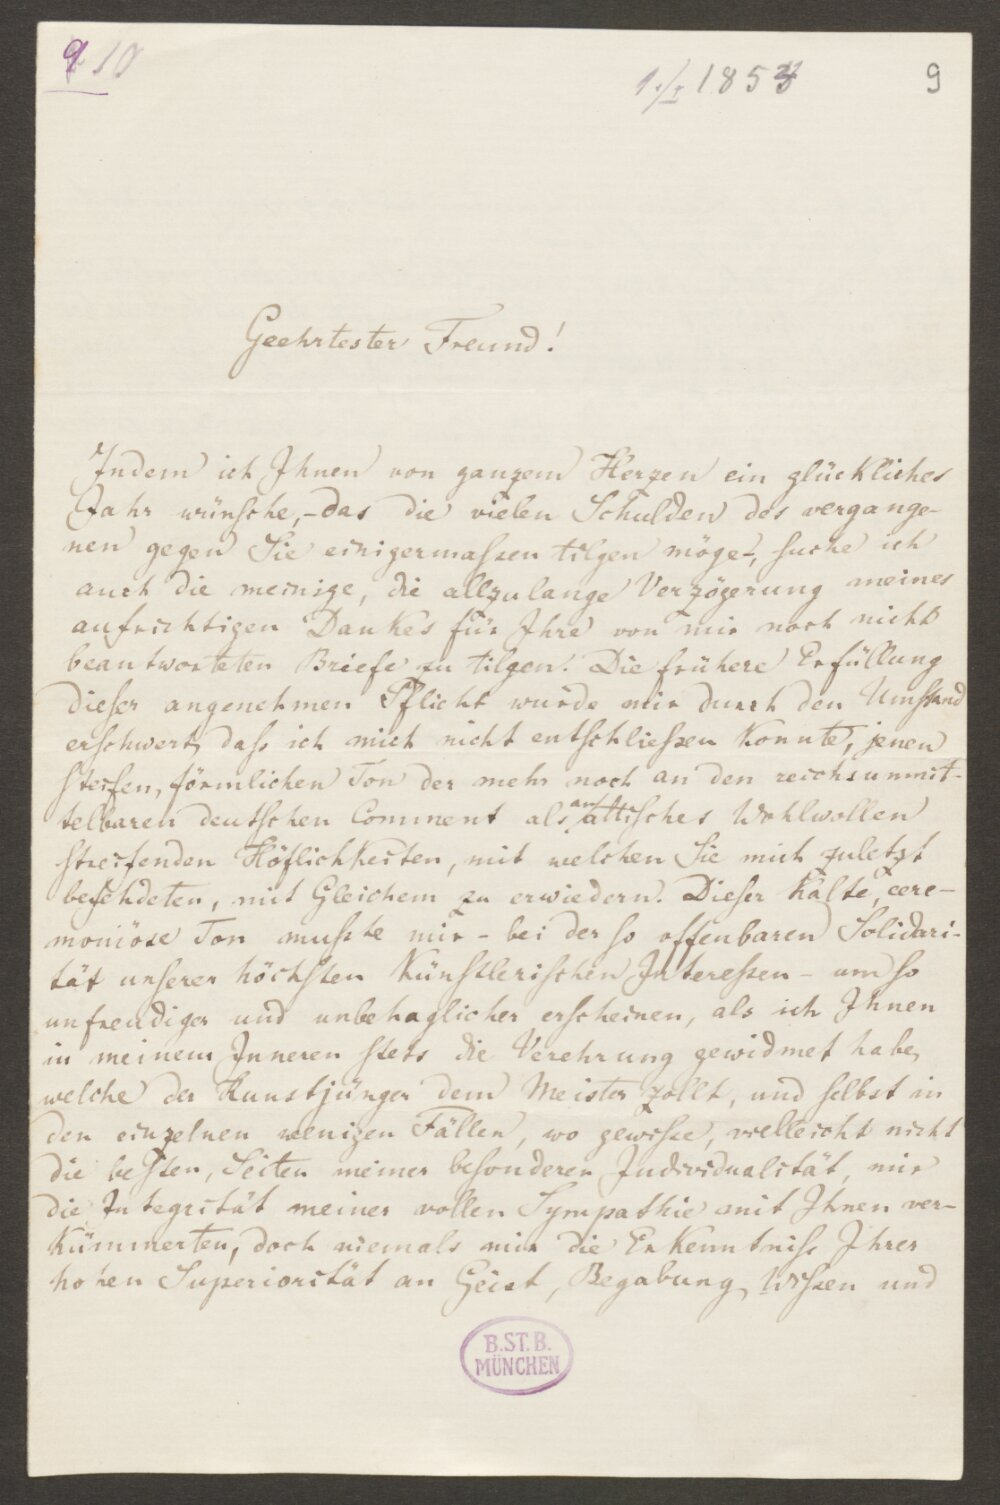 9 10
1./I 1853
9
Geehrtester Freund!
Indem ich Ihnen von ganzem Herzen ein glückliches
Jahr wünsche, – das die vielen Schulden des vergange-
nen gegen Sie einigermaßen tilgen möge –, suche ich
auch die meinige, die allzulange Verzögerung meines
aufrichtigen Dankes für Ihre von mir noch nicht
beantworteten Briefe zu tilgen. Die frühere Erfüllung
dieser angenehmen Pflicht wurde mir durch den Umstand
erschwert, daß ich mich nicht entschließen konnte, jenen
steifen, förmlichen Ton der mehr noch an den reichsunmit-
telbaren deutschen Comment als an attisches Wohlwollen
streifenden Höflichkeiten, mit welchen Sie mich zuletzt
befehdeten, mit Gleichem zu erwiedern. Dieser kalte, cere-
moniöse Ton mußte mir – bei der so offenbaren Solidari-
tät unserer höchsten künstlerischen Interessen – um so
unfreudiger und unbehaglicher erscheinen, als ich Ihnen
in meinem Inneren stets die Verehrung gewidmet habe,
welche der Kunstjünger dem Meister zollt, und selbst in
den einzelnen wenigen Fällen, wo gewisse, vielleicht nicht
die besten, Seiten meiner besonderen Individualität, mir
die Integrität meiner vollen Sympathie mit Ihnen ver-
kümmerten, doch niemals mir die Erkenntniß Ihrer
hohen Superiorität an Geist, Begabung, Wissen und
B.ST.B.
MÜNCHEN